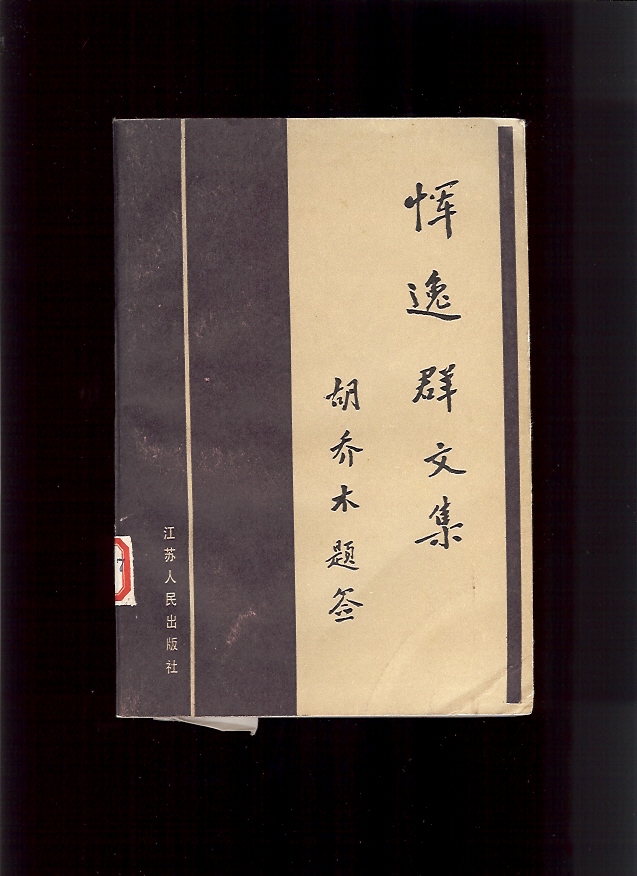 恽逸群文集
胡乔木题签
江苏人民出版社
7